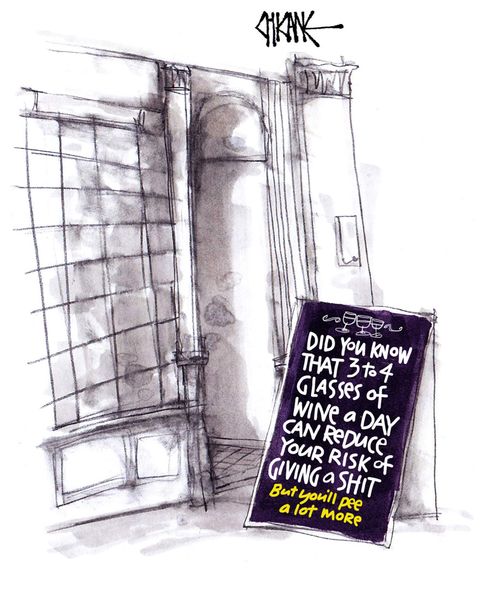 CHKANE
DID YOU KNOW
THAT 3 to 4
GLASSES of
WINE a DAY
CAN REDUCE
YOUR RISK of
GIVING a SHIT
But you'll pee
a lot more